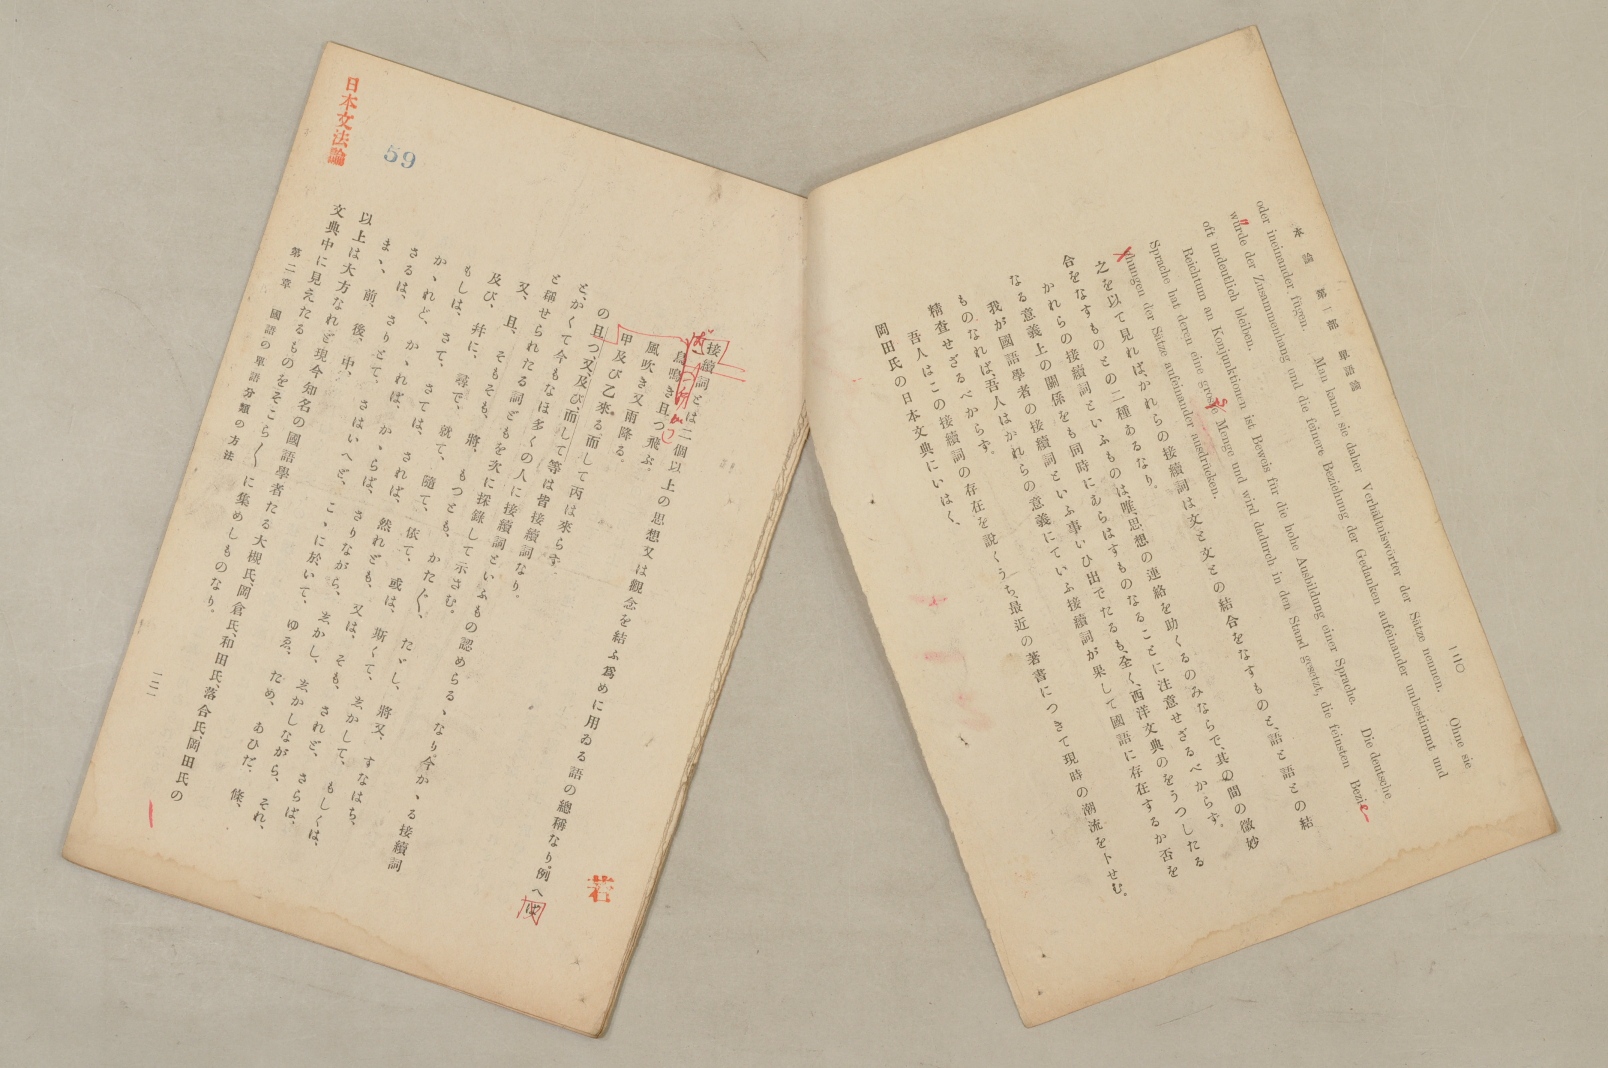 本論 第一部 單語論
一二〇
oder ineinander fügen. Man kann sie daher Verhältniswörter der Sätze nennen. Ohne sie
würde der Zusammenhang und die feinere Beziehung der Gedanken aufeinander unbestimmt und
oft undentlich bleiben.
Reichtum an Konjunktionen ist Beweis für die hohe Ausbildung einer Sprache. Die deutsche
Sprache hat deren eine grosse Menge und wird dadurch in den Stand gesetzt, die feinsten Bezie-
hungen der Sätze aufeinander ausdrücken.
之を以て見れば、かれらの接續詞は文と文との結合をなすものと、語と語との結
合をなすものとの二種あるなり。
かれらの接續詞といふものは、唯、思想の連絡を助くるのみならで、其の間の微妙
なる意義上の關係をも同時にあらはすものなることに注意せざるべからず。
我が國語學者の接續詞といふ事いひ出でたるも、全く、西洋文典のをうつしたる
ものなれば、吾人はかれらの意義にていふ接續詞が果して國語に存在するか否を
精査せざるべからず。
吾人はこの接續詞の存在を說くうち、最近の著書につきて現時の潮流をトせむ。
岡田氏の日本文典にいはく、
接續詞とは二個以上の思想又は觀念を結ふ爲めに用ゐる語の總稱なり。例へば
鳥鳴き且つ飛ぶ。
風吹き又雨降る。
甲及び乙來る而して丙は來らず。
の且つ、又、及び、而して等は皆接續詞なり。
と、かくて今もなほ多くの人に接續詞といふもの認めらるゝなり。今かゝる接續詞
と稱せられたる詞どもを次に採錄して示さむ。
又、且、及び、幷に、そもそも、將、もつとも、かたぐ、たゞし、將又、すなはち、
もしは、さて、尋で、就て、隨て、依て、或は、斯くて、えかして、もしくは、
かゝれど、さては、されば、然れども、又は、そも、されど、さらば、
さるは、かゝれば、かゝらば、さりながら、えかし、えかしながら、それ、
まゝ、さりとて、さはいへど、こゝに於いて、ゆゑ、ため、あひだ、條、
前、後、中、
以上は大方なれど現今知名の國語學者たる大槻氏、岡倉氏、和田氏、落合氏、岡田氏の
文典中に見えたるものをそこら〱に集めしものなり。
第二章 國語の單語分類の方法
一二一
日本文法論
59
若